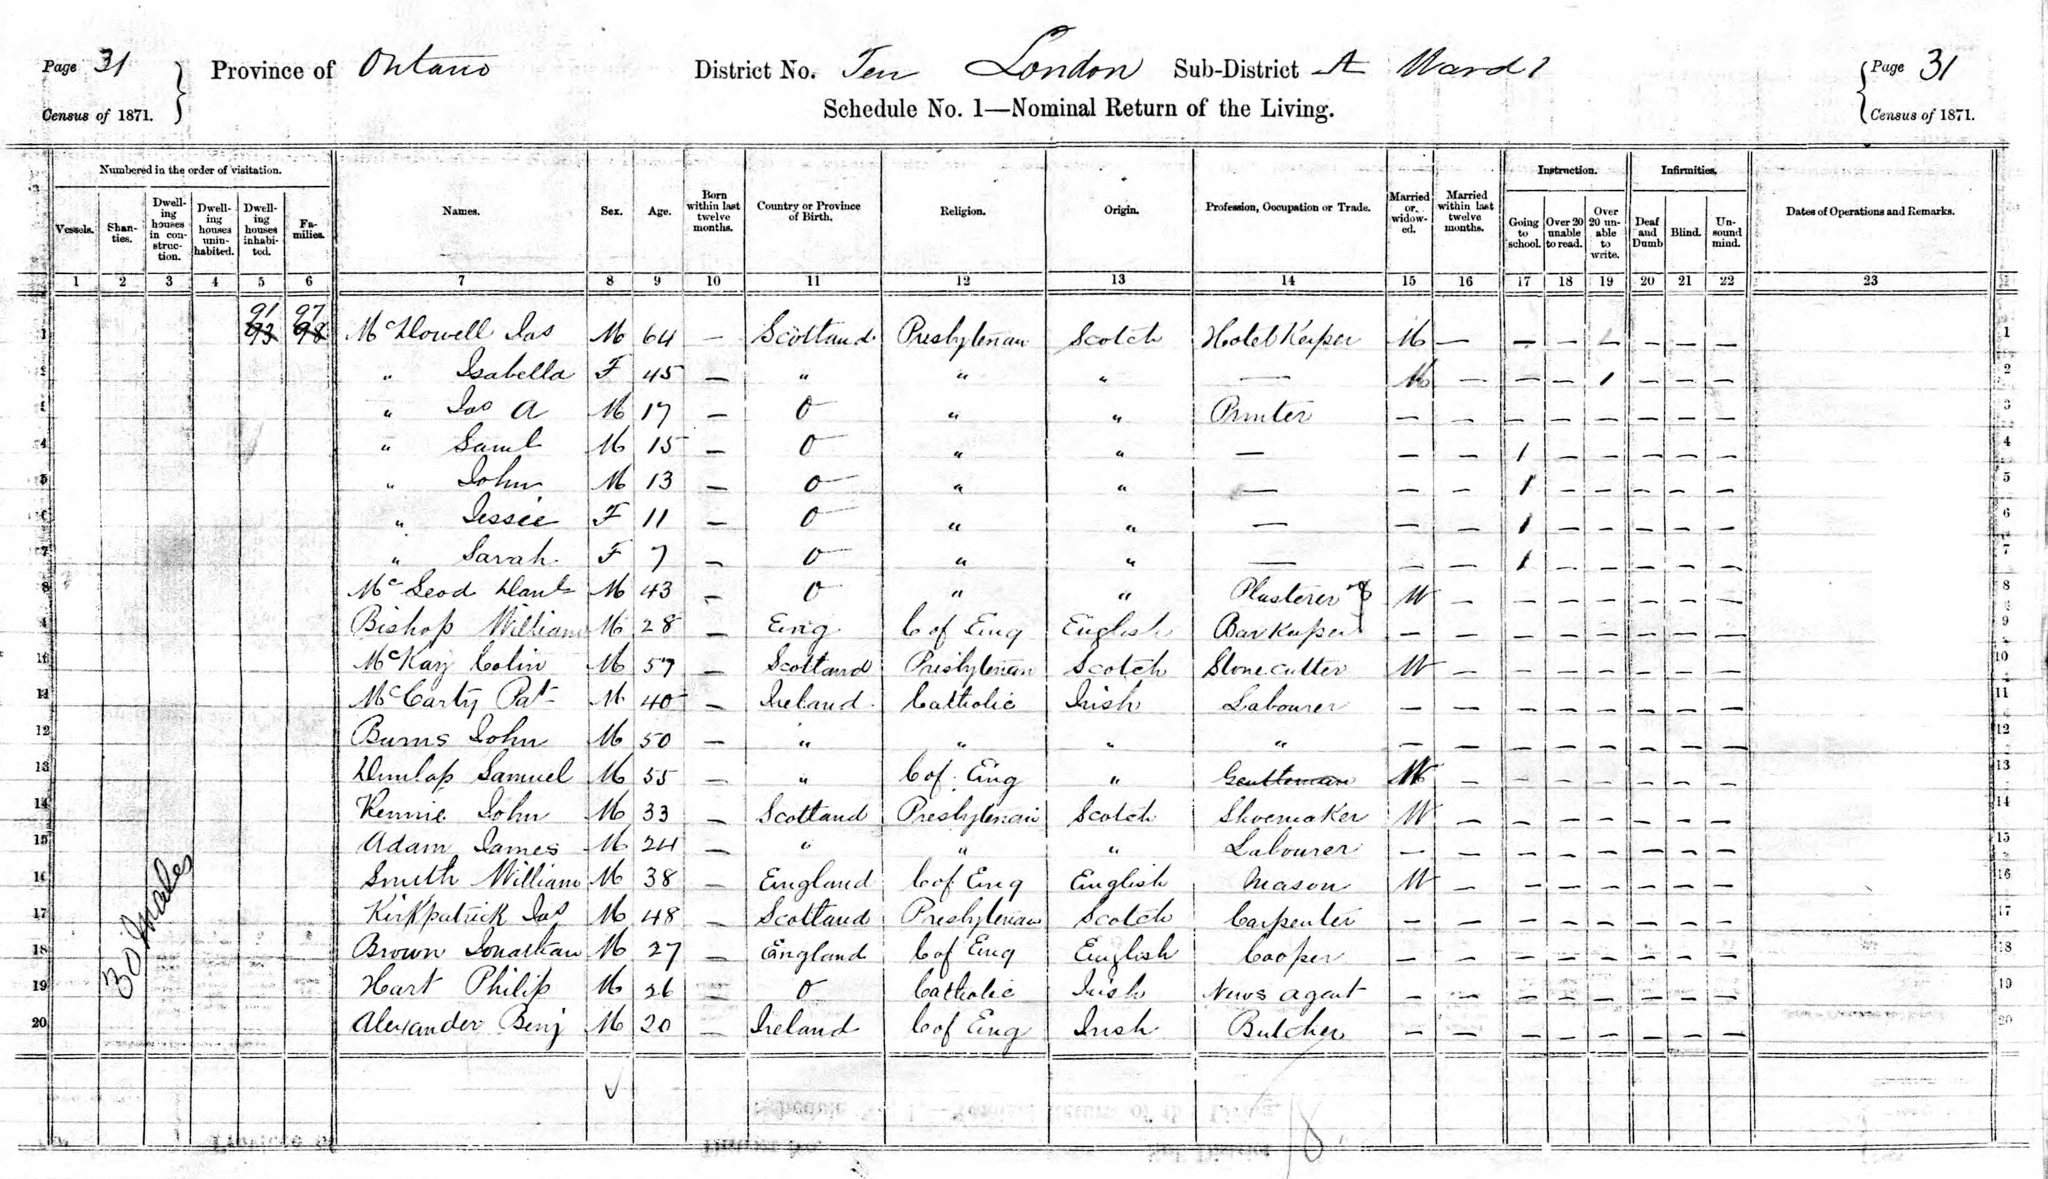 Page 31 Province of Ontario District No. Ten London Sub-District A Ward 1 Page 31
Census of 1871. Schedule No. 1—Nominal Return of the Living. Census of 1871.
Numbered in the order of visitation. Instruction. Infirmities.
Vessels. Shanties. Dwelling houses in construction. Dwelling houses uninhabited. Dwelling houses inhabited. Families. Names. Sex. Age. Born within last twelve months. Country or Province of Birth. Religion. Origin. Profession, Occupation or Trade. Married or widowed. Married within last twelve months. Going to school. Over 20 unable to read. Over 20 unable to write. Deaf and Dumb Blind. Unsound mind. Dates of Operations and Remarks.
1 2 3 4 5 6 7 8 9 10 11 12 13 14 15 16 17 18 19 20 21 22 23
91 97
1 93 98 McDowell Jas M 64 — Scotland Presbyterian Scotch Hotel Keeper M — — — — — — 1
2 " Isabella F 45 — " " " — M — — — 1 — — — 2
3 " Jas A M 17 — O " " Printer — — — — — — — — 3
4 " Saml M 15 — O " " — — — 1 — — — — — 4
5 " John M 13 — O " " — — — 1 — — — — — 5
6 " Jessie F 11 — O " " — — — 1 — — — — — 6
7 " Sarah F 7 — O " " — — — 1 — — — — — 7
8 McLeod Danl M 43 — O " " Plasterer W — — — — — — — 8
9 Bishop William M 28 — Eng C of Eng English Bar Keeper — — — — — — — — 9
10 McKay Colin M 57 — Scotland Presbyterian Scotch Stone cutter W — — — — — — — 10
11 McCarty Pat M 40 — Ireland Catholic Irish Labourer — — — — — — — — 11
12 Burns John M 50 — " " " " — — — — — — — — 12
13 Dunlap Samuel M 55 — " C of Eng " Gentleman W — — — — — — — 13
14 Rennie John M 33 — Scotland Presbyterian Scotch Shoemaker W — — — — — — — 14
15 Adam James M 24 — " " " Labourer — — — — — — — — 15
16 Smith William M 38 — England C of Eng English Mason W — — — — — — — 16
17 Kirkpatrick Jas M 48 — Scotland Presbyterian Scotch Carpenter — — — — — — — — 17
18 Brown Jonathan M 27 — England C of Eng English Cooper — — — — — — — — 18
19 Hart Philip M 26 — O Catholic Irish News agent — — — — — — — — 19
20 Alexander Benj M 20 — Ireland C of Eng Irish Butcher — — — — — — — — 20
30 Males